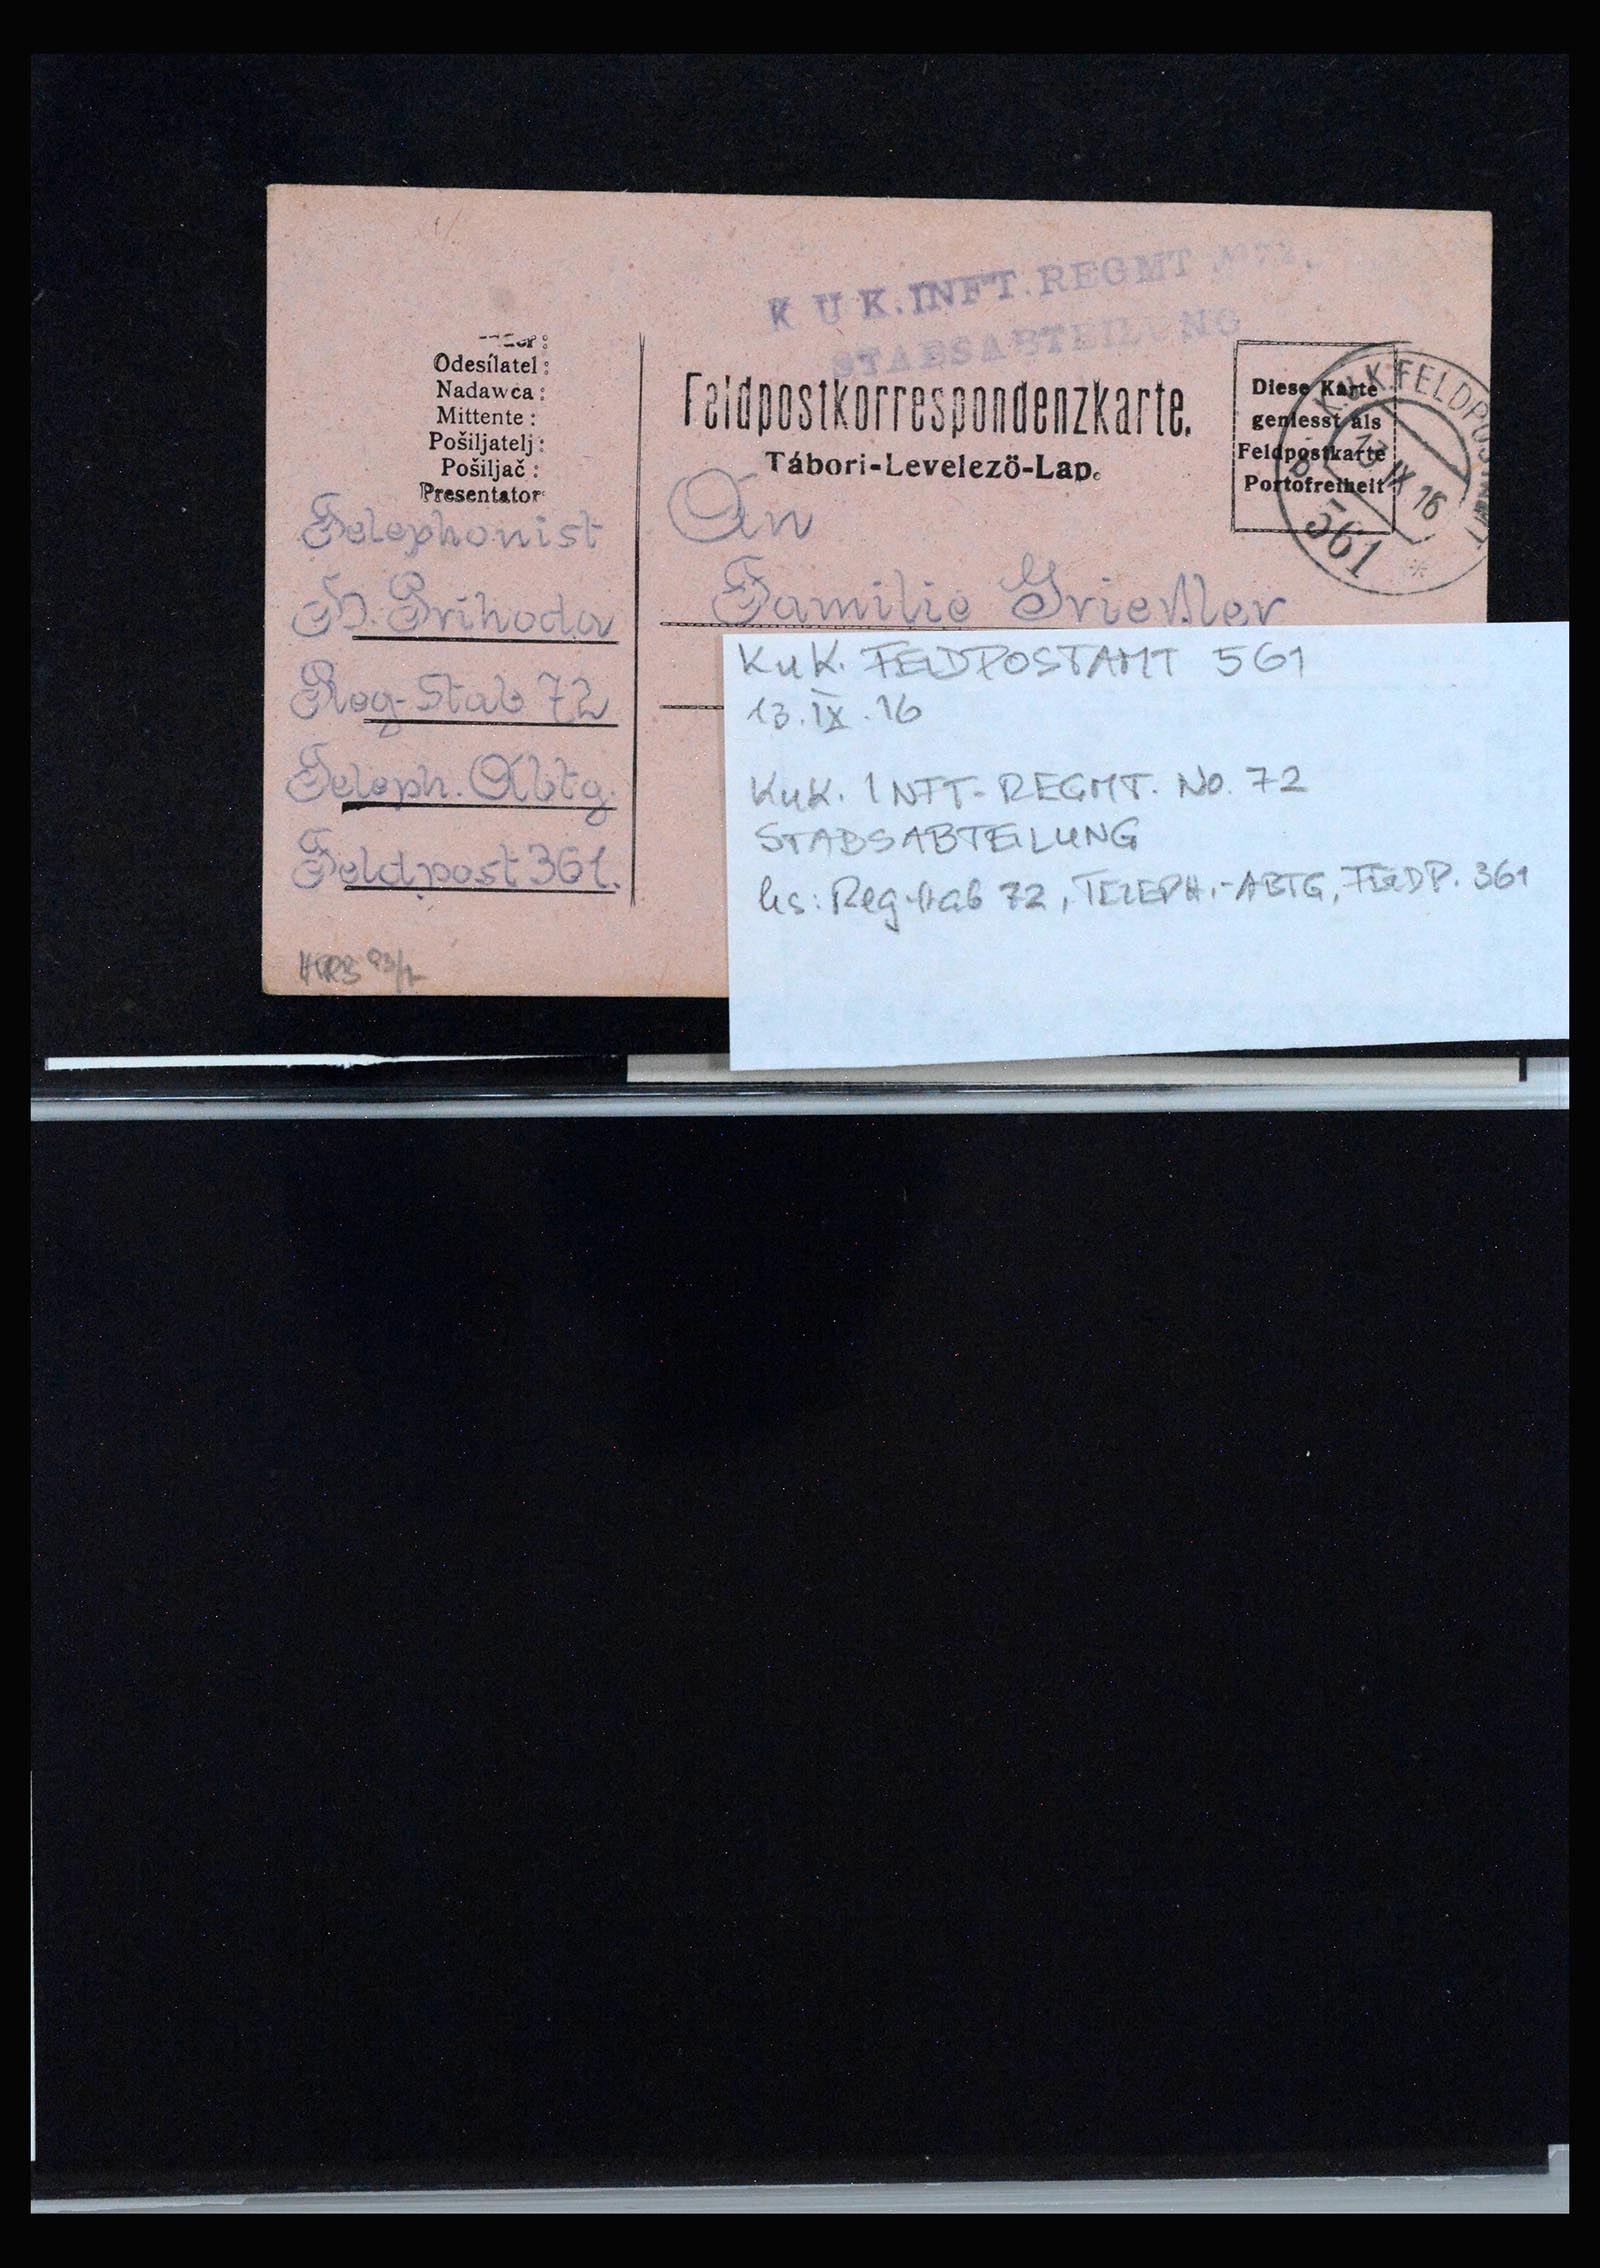 K U K. INFT. REGMT
STABSABTEILUNG
Odesílatel:
Nadawca:
Mittente:
Pošiljatelj:
Pošiljač:
Presentator:
Feldpostkorrespondenzkarte.
Tábori-Levelezö-Lap.
Diese Karte
geniesst als
Feldpostkarte
Portofreiheit
K.U.K. FELDPOSTAMT
13 IX 16
561
Telephonist
Prihoda
Reg-Stab 72
Teleph. Abtg.
Feldpost 361.
An
Familie Grießler
KuK. FELDPOSTAMT 561
13. IX. 16
KuK. INFT-REGMT. No. 72
STABSABTEILUNG
hs: Reg-stab 72, TELEPH.-ABTG, FELDP. 361